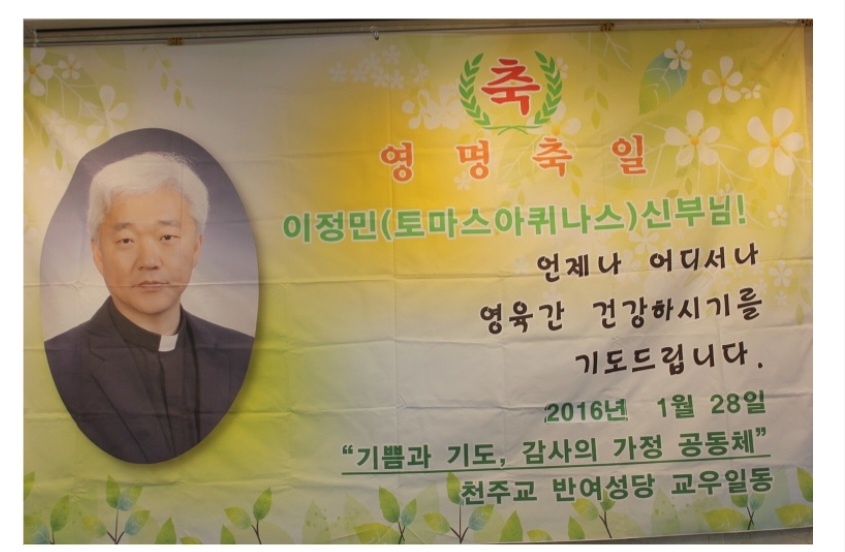 축
영명축일
이정민(토마스아퀴나스)신부님!
언제나 어디서나
영육간 건강하시기를
기도드립니다.
2016년 1월 28일
“기쁨과 기도, 감사의 가정 공동체”
천주교 반여성당 교우일동